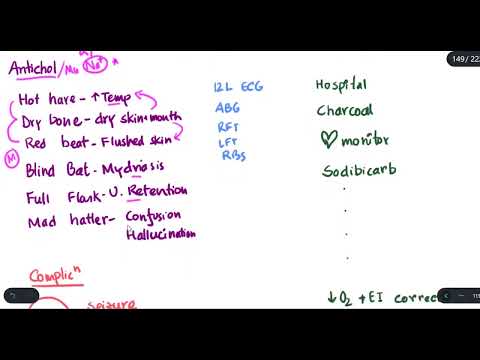 149 / 22
Antichol / Mu Na+ *
Hot hare - ↑ Temp
Dry bone - dry skin + mouth
Red beat - Flushed skin
M
Blind Bat - Mydriasis
Full Flask - U. Retention
Mad hatter - Confusion
Hallucination
12L ECG
ABG
RFT
LFT
RBS
Hospital
Charcoal
♡ monitor
Sodibicarb
Complicⁿ
Seizure
↓ O2 + EI correc